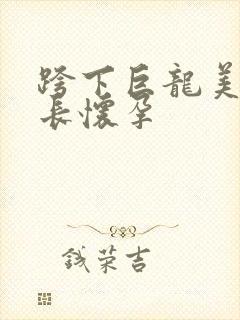 跨下巨龍美
長懷孕
钱荣吉